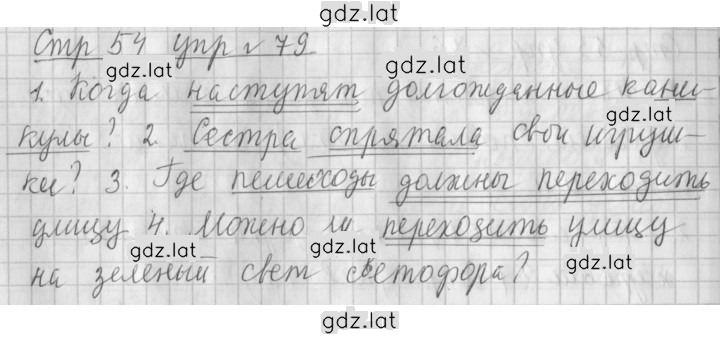 gdz.lat
Стр 54 упр № 79
gdz.lat
gdz.lat
1. Когда наступят долгожданные кани-
gdz.lat
кулы? 2. Сестра спрятала свои игруш-
ки? 3. Где пешеходы должны переходить
улицу 4. Можно ли переходить улицу
gdz.lat
gdz.lat
на зеленый свет светофора?
gdz.lat
gdz.lat